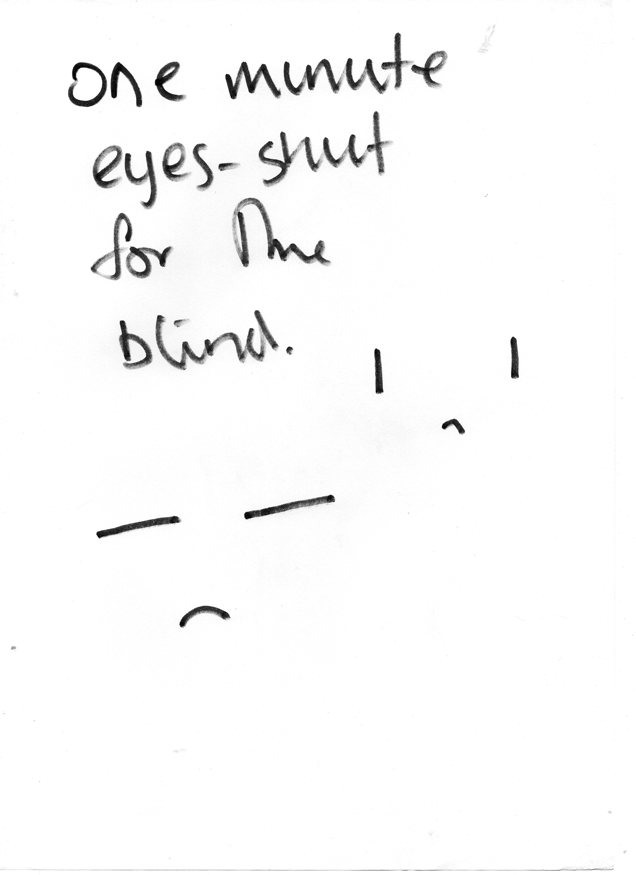 one minute
eyes-shut
for the
blind.